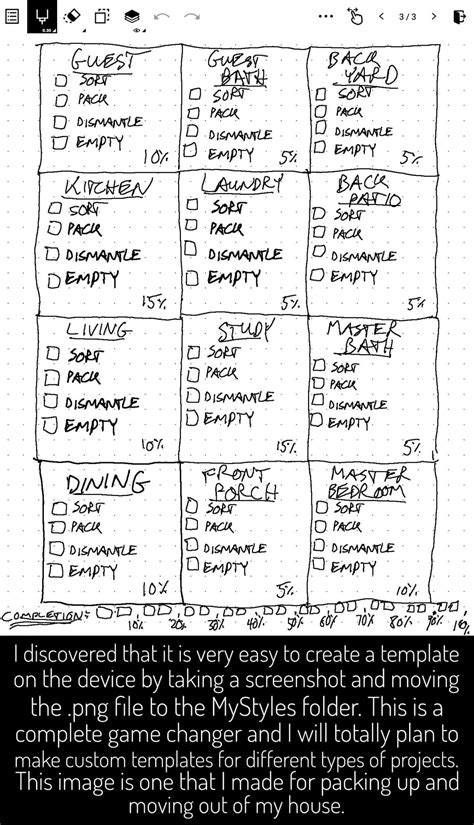 3/3
0.30
GUEST
SORT
PACK
DISMANTLE
EMPTY
10%
GUEST
BATH
SORT
PACK
DISMANTLE
EMPTY
5%
BACK
YARD
SORT
PACK
DISMANTLE
EMPTY
5%
KITCHEN
SORT
PACK
DISMANTLE
EMPTY
15%
LAUNDRY
SORT
PACK
DISMANTLE
EMPTY
5%
BACK
PATIO
SORT
PACK
DISMANTLE
EMPTY
5%
LIVING
SORT
PACK
DISMANTLE
EMPTY
10%
STUDY
SORT
PACK
DISMANTLE
EMPTY
15%
MASTER
BATH
SORT
PACK
DISMANTLE
EMPTY
5%
DINING
SORT
PACK
DISMANTLE
EMPTY
10%
FRONT
PORCH
SORT
PACK
DISMANTLE
EMPTY
5%
MASTER
BEDROOM
SORT
PACK
DISMANTLE
EMPTY
10%
COMPLETION:
10% 20% 30% 40% 50% 60% 70% 80% 90%
I discovered that it is very easy to create a template
on the device by taking a screenshot and moving
the .png file to the MyStyles folder. This is a
complete game changer and I will totally plan to
make custom templates for different types of projects.
This image is one that I made for packing up and
moving out of my house.